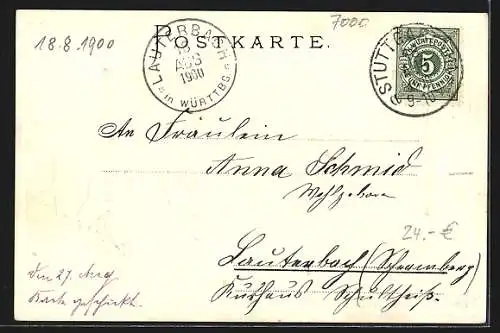 18.8.1900
7000
POSTKARTE.
LAUTERBACH
18
AUG
1900
in WÜRTTBG.
STUTTGART
9-10
K. WÜRTT. POST
5
FÜNF PFENNIG
An Fräulein
Anna Schmid
Wohlgeboren
24.-€
Lauterbach (Schramberg)
Kurhaus Schultheiß.
Den 27. Aug
Karte geschickt.